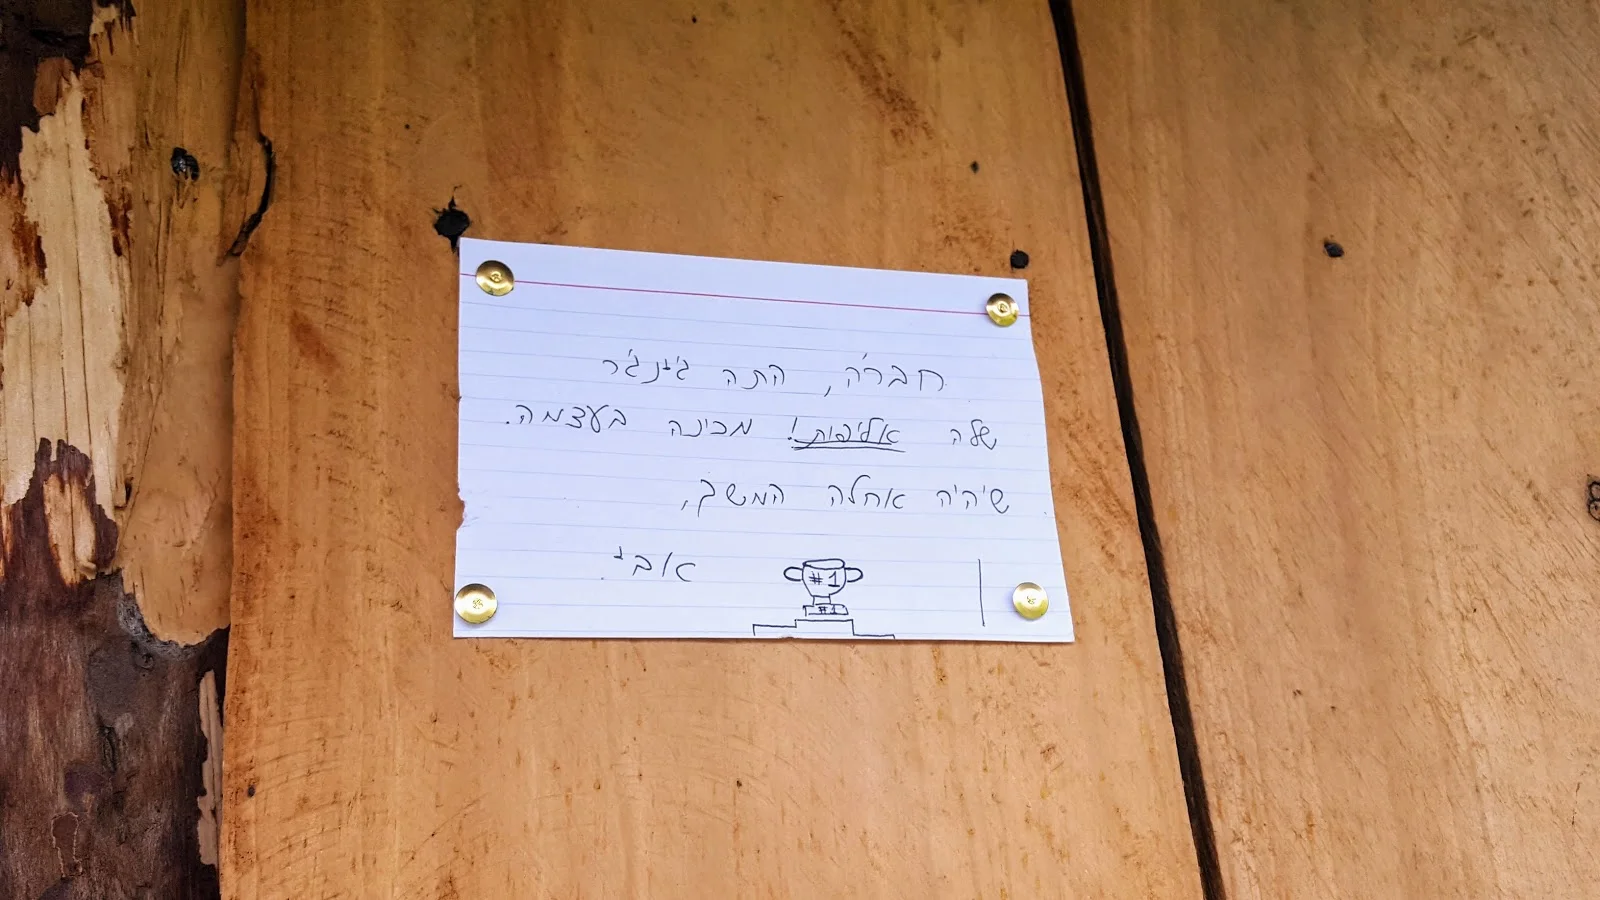 חבר׳ה, התה ג׳ינג׳ר
שלה אליפות! מכינה בעצמה.
שיהיה אחלה המשך,
אבי.
#1
#1